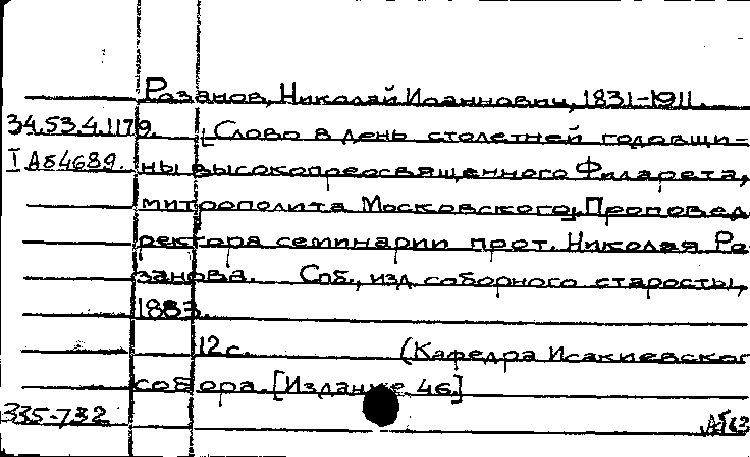 Розанов, Николай Иоаннович, 1831-1911.
34.53.4.1179. [Слово в день столетней годовщи-
I Аб4689. ны высокопреосвященного Филарета,
митрополита Московского]. Проповед
ректора семинарии прот. Николая Ро
занова. Спб., изд. соборного старосты,
1883.
12 с. (Кафедра Исакиевског
собора. [Издание 46.]
335-732